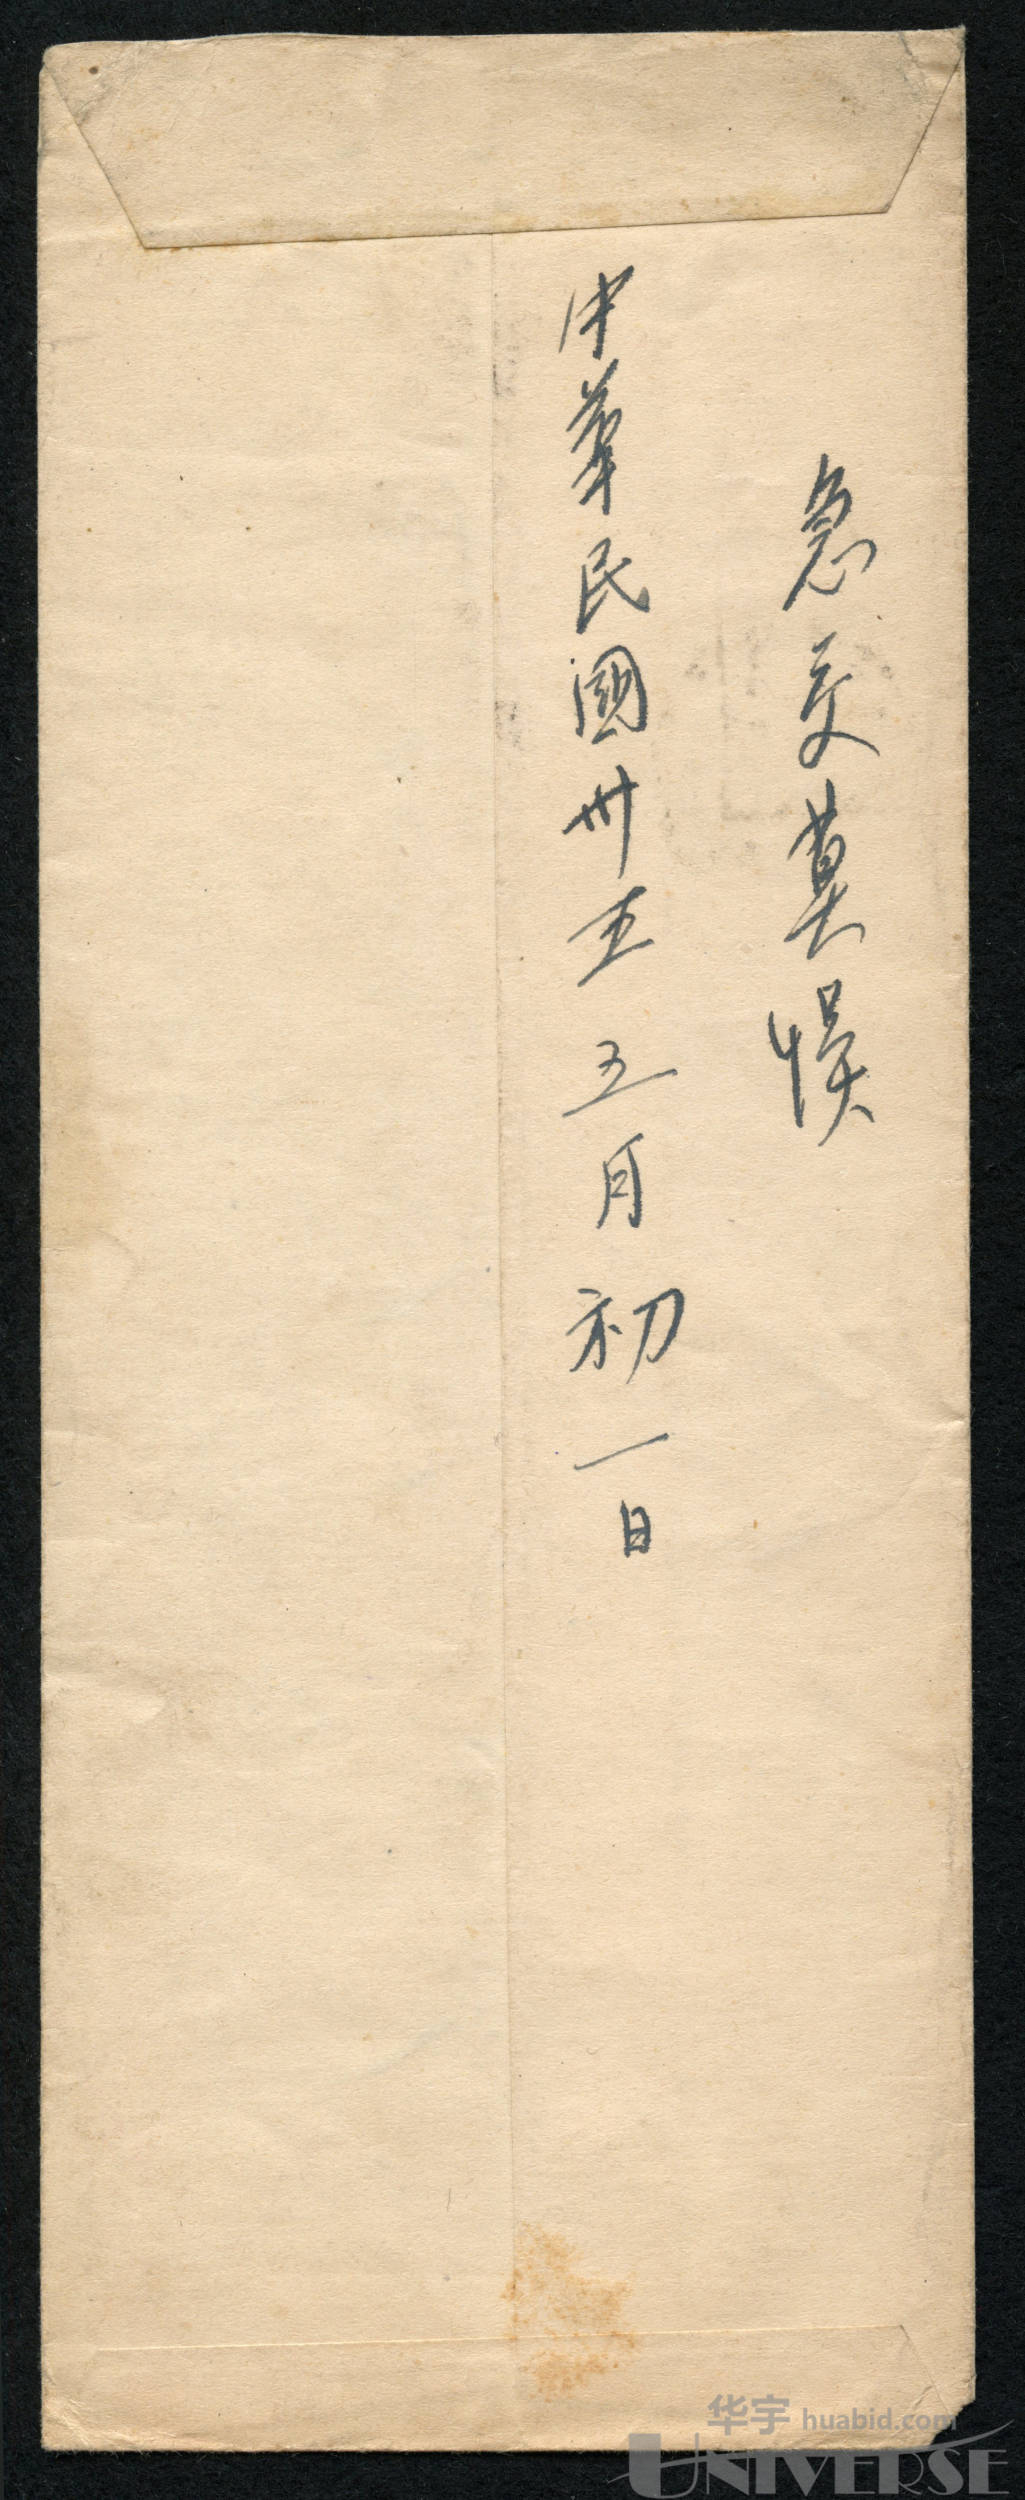 急交莫悮
中華民國卅五 五月初一日
华宇 huabid.com
UNIVERSE